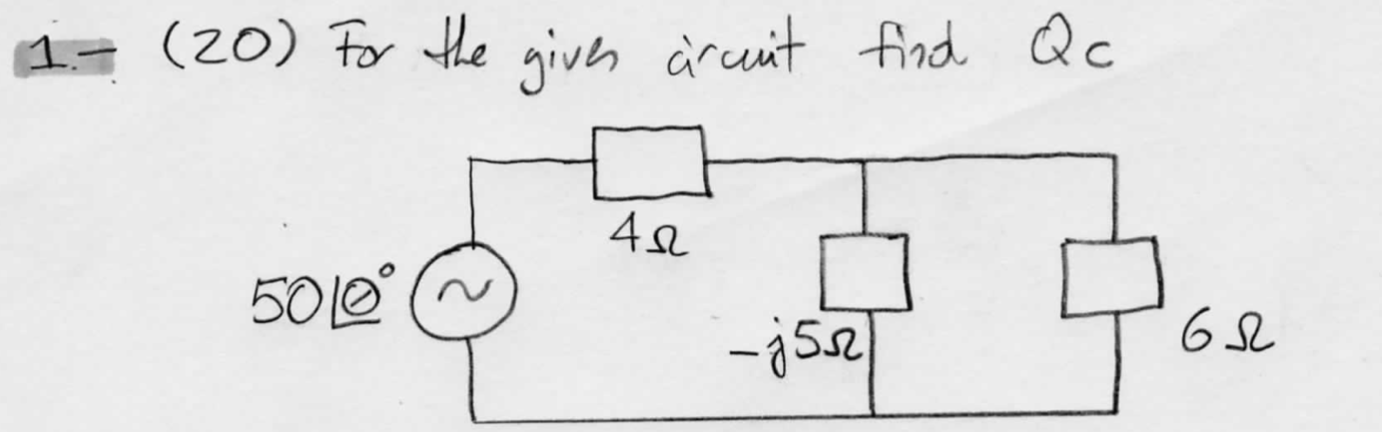 1.- (20) For the given circuit find Qc
4Ω
50∠0°
-j5Ω
6Ω